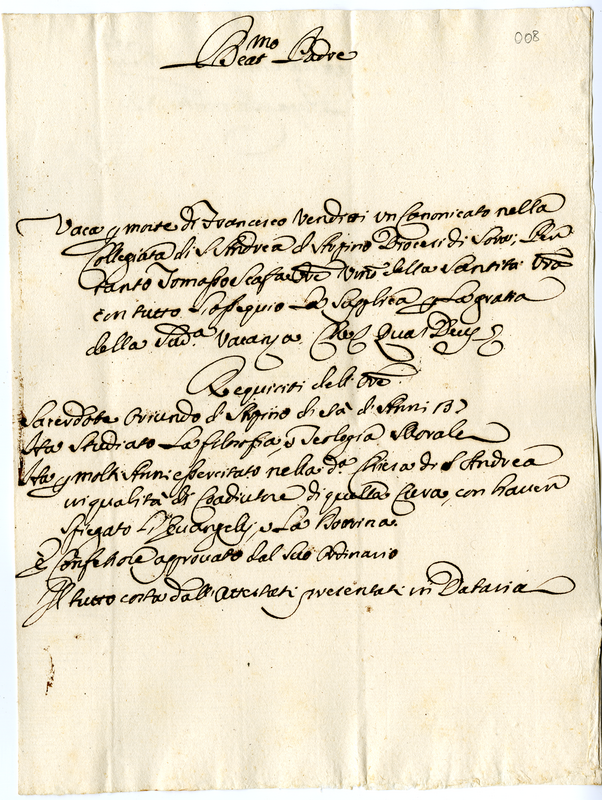 008
Beat.mo Padre
Vaca p morte di Francesco Venditti un Canonicato nella
Collegiata di S. Andrea d'Arpino Diocesi di Sora; Per
tanto Tomasso Ore Umo della Santità Vra
con tutto l'ossequio La Supplica p La grazia
della Sud.a Vacanza. Che Quas Deus
Requisiti dell'Ore
Sacerdote Oriundo di Arpino di età di Anni
Ha Studiato La filosofia, e Teologia Morale
Ha p molti Anni esercitato nella d.a Chiesa di S. Andrea
in qualità di Coadiutore di quella Cura, con haver
spiegato L'Evangelij, e La Dottrina.
È Confessore approvato dal suo Ordinario
Il tutto costa dall'Attestati presentati in Dataria